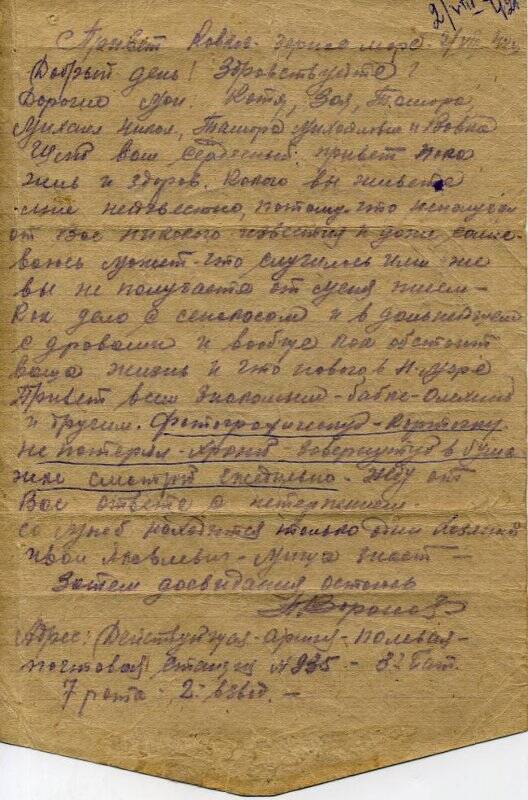 2/VIII-42г
Привет
Добрый день! Здравствуйте!
Дорогие мои: Катя, Зоя, Тамара,
Михаил Никол, Тамара Михайловна и Вовка
Шлю Вам сердечный привет пока
жив и здоров. Каково вы живете
мне неизвестно, потому-что неполучаю
от Вас никакого известия и даже
может-что случилось или же
вы не получаете от меня писем-
Как дело с сенокосом и в дальнейшем
с дровами и вообще как обстоит
ваша жизнь и что нового в
Привет всем знакомым-бабке-
и другим. Фотографическую-карточку
не потерял-храню завернутую в бума
жке смотрю ежедневно. Жду от
Вас ответа с нетерпением.
со мной находится только один
Яковлевич-Миша знает-
Затем досвидания остаюсь
Адрес: Действующая-армия-полевая-
почтовая станция №835-3й бат.
7 рота-2й взвод.-